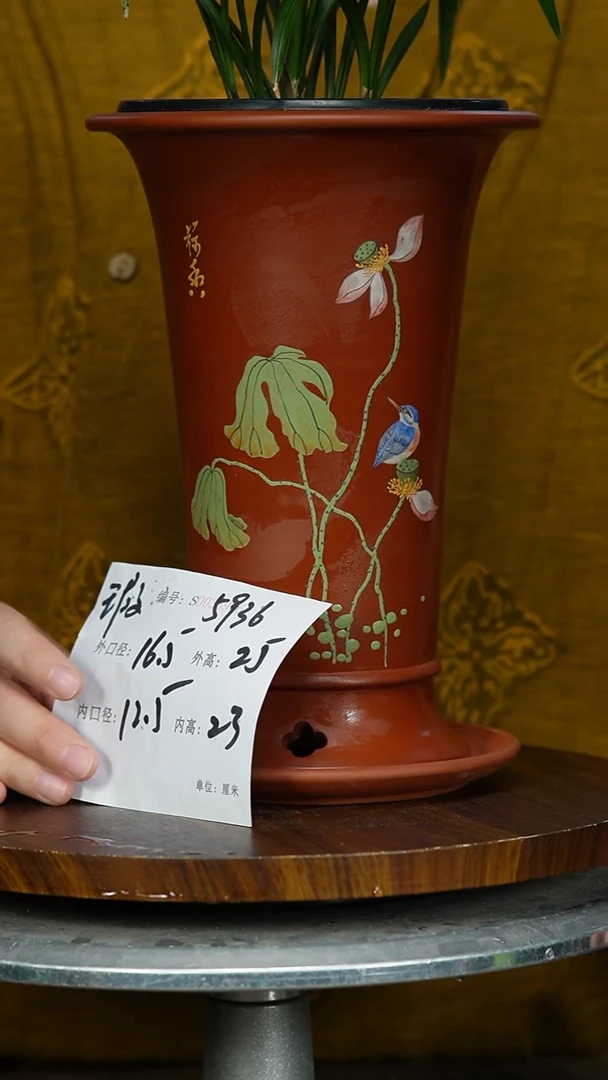 编号: 5936
外口径: 16.5 外高: 25
内口径: 12.5 内高: 23
单位: 厘米